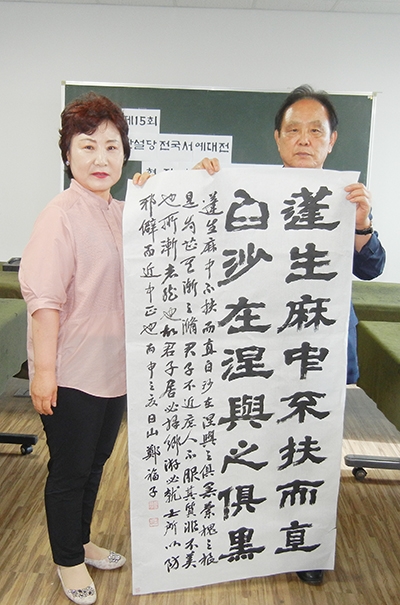 제15회
설당전국서예대전
蓬生麻中不扶而直
白沙在涅與之俱黑
蓬生麻中不扶而直白沙在涅與之俱黑蘭槐之根
是爲芷其漸之滫君子不近庶人不服其質非不美
也所漸者然也故君子居必擇鄕游必就士所以防
邪僻而近中正也 丙申之亥 日山 鄭福子